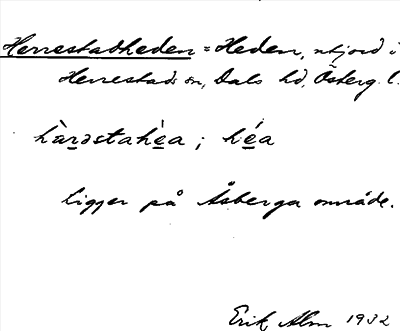 Herrestadsheden = Heden, utjord i
Herrestads sn, Dals hd, Österg. l.
hàrəstahèa ; héa
Ligger på Åsberga område.
Erik Alm 1932